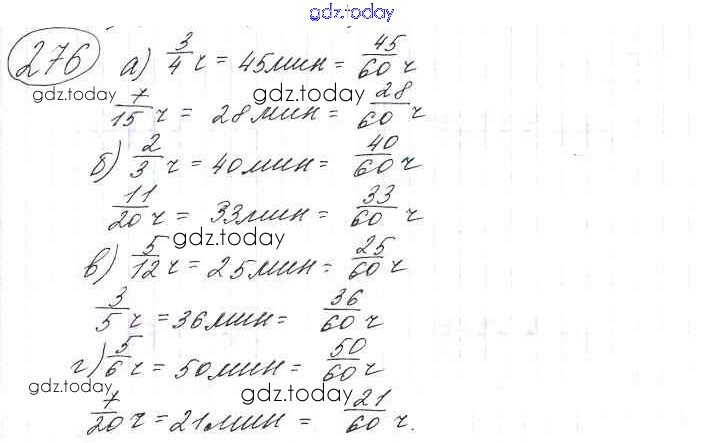 gdz.today
276 а) 3/4 ч = 45 мин = 45/60 ч
gdz.today gdz.today
7/15 ч = 28 мин = 28/60 ч
б) 2/3 ч = 40 мин = 40/60 ч
11/20 ч = 33 мин = 33/60 ч
gdz.today
в) 5/12 ч = 25 мин = 25/60 ч
3/5 ч = 36 мин = 36/60 ч
г) 5/6 ч = 50 мин = 50/60 ч
gdz.today gdz.today
7/20 ч = 21 мин = 21/60 ч.